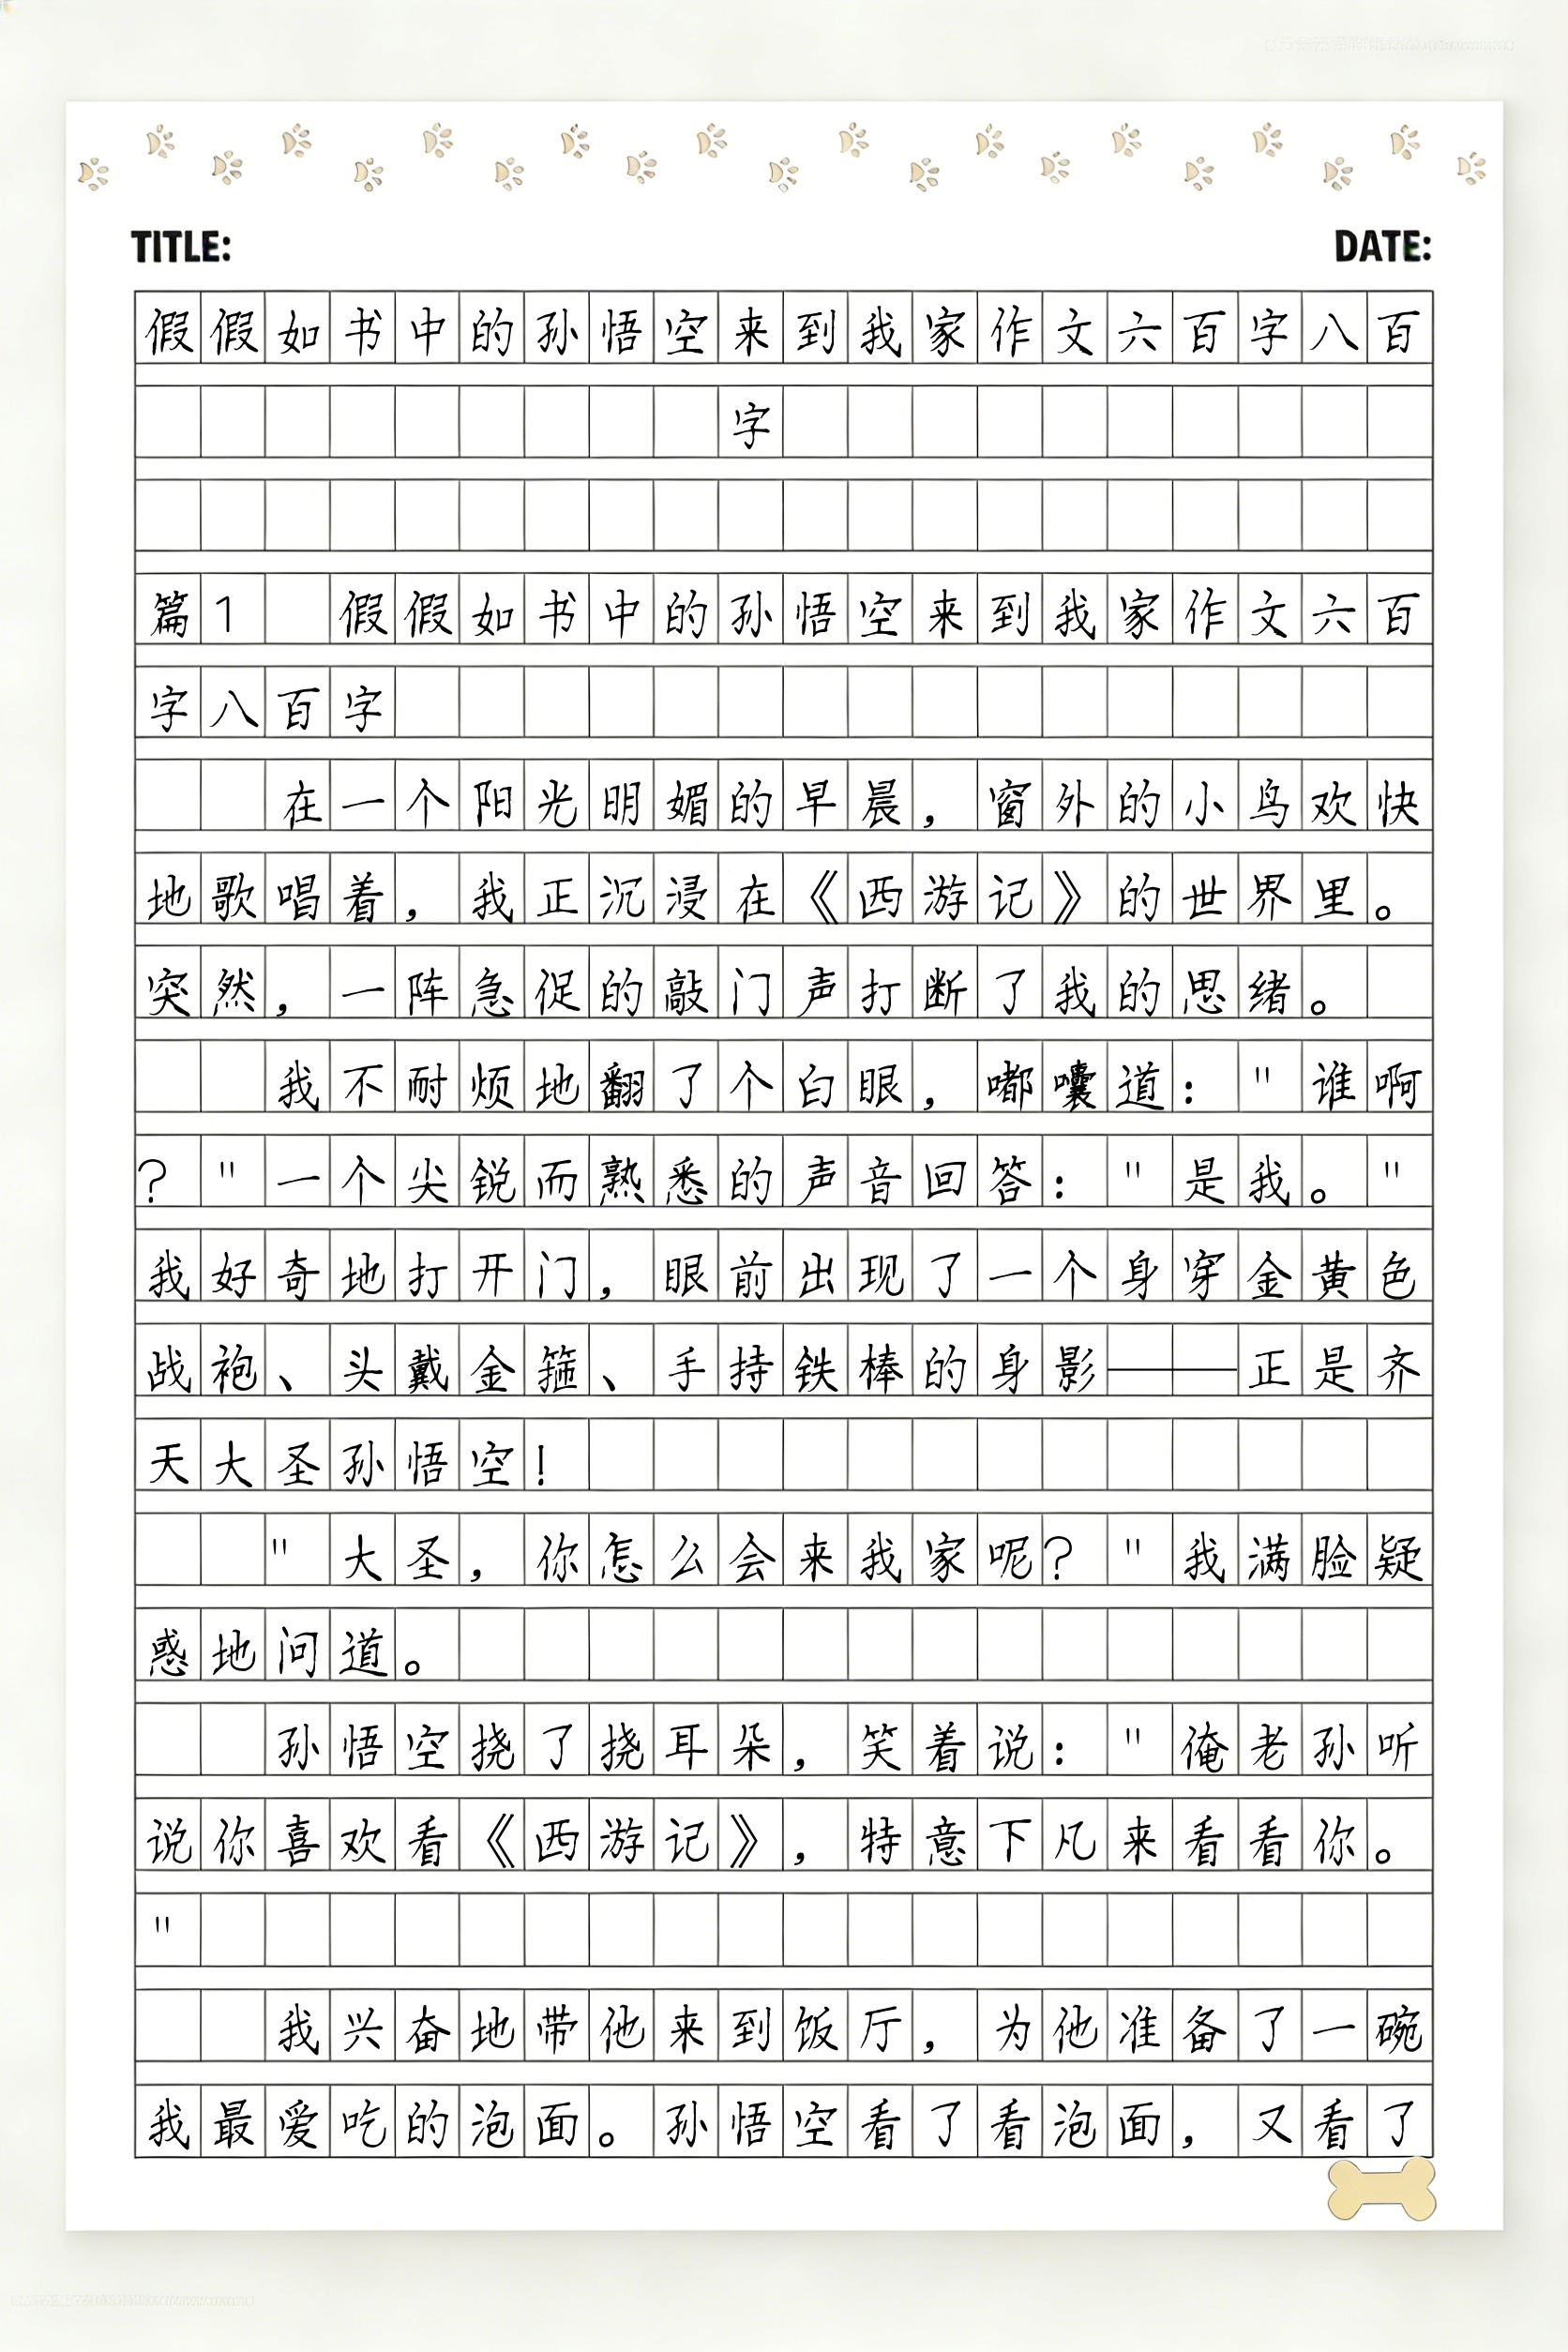 TITLE: DATE:
假假如书中的孙悟空来到我家作文六百字八百
字
篇1 假假如书中的孙悟空来到我家作文六百
字八百字
在一个阳光明媚的早晨，窗外的小鸟欢快
地歌唱着，我正沉浸在《西游记》的世界里。
突然，一阵急促的敲门声打断了我的思绪。
我不耐烦地翻了个白眼，嘟囔道："谁啊
？"一个尖锐而熟悉的声音回答："是我。"
我好奇地打开门，眼前出现了一个身穿金黄色
战袍、头戴金箍、手持铁棒的身影——正是齐
天大圣孙悟空！
"大圣，你怎么会来我家呢？"我满脸疑
惑地问道。
孙悟空挠了挠耳朵，笑着说："俺老孙听
说你喜欢看《西游记》，特意下凡来看看你。
"
我兴奋地带他来到饭厅，为他准备了一碗
我最爱吃的泡面。孙悟空看了看泡面，又看了